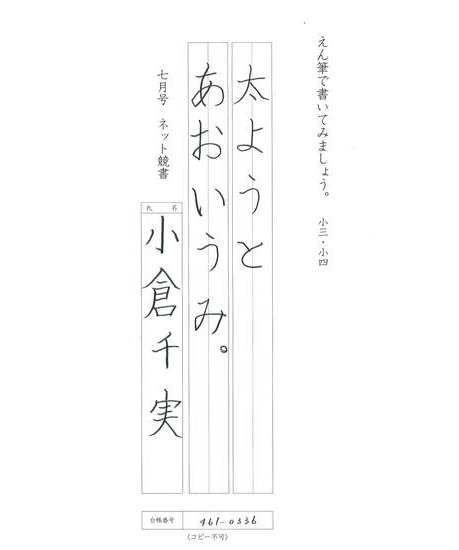 えん筆で書いてみましょう。 小三・小四
太ようと
あおいうみ。
七月号 ネット競書
氏名
小倉千実
台帳番号 461-0336
(コピー不可)